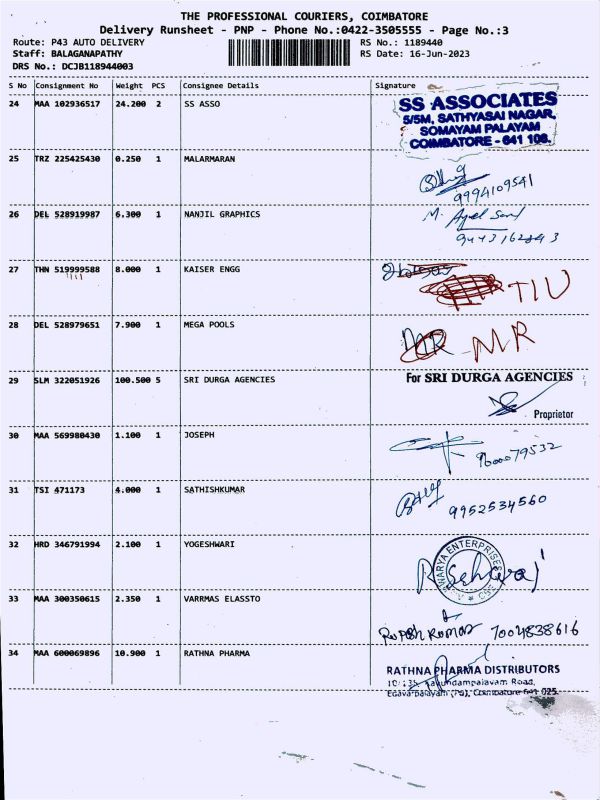 THE PROFESSIONAL COURIERS, COIMBATORE
Delivery Runsheet - PNP - Phone No.:0422-3505555 - Page No.:3
Route: P43 AUTO DELIVERY RS No.: 1189440
Staff: BALAGANAPATHY RS Date: 16-Jun-2023
DRS No.: DCJB118944003
S No Consignment No Weight PCS Consignee Details Signature
24 MAA 102936517 24.200 2 SS ASSO
SS ASSOCIATES
5/5M, SATHYASAI NAGAR,
SOMAYAM PALAYAM
COIMBATORE - 641 108.
25 TRZ 225425430 0.250 1 MALARMARAN
9994109541
26 DEL 528919987 6.300 1 NANJIL GRAPHICS
M.
27 THN 519999588 8.000 1 KAISER ENGG
TIU
28 DEL 528979651 7.900 1 MEGA POOLS
MR
29 SLM 322051926 100.500 5 SRI DURGA AGENCIES
For SRI DURGA AGENCIES
Proprietor
30 MAA 569980430 1.100 1 JOSEPH
9600079532
31 TSI 471173 4.000 1 SATHISHKUMAR
9952534560
32 HRD 346791994 2.100 1 YOGESHWARI
ENTERPRISES
33 MAA 300350615 2.350 1 VARRMAS ELASSTO
Rupesh Kumar 7004838616
34 MAA 600069896 10.900 1 RATHNA PHARMA
RATHNA PHARMA DISTRIBUTORS
Road,
Coimbatore 641 025.